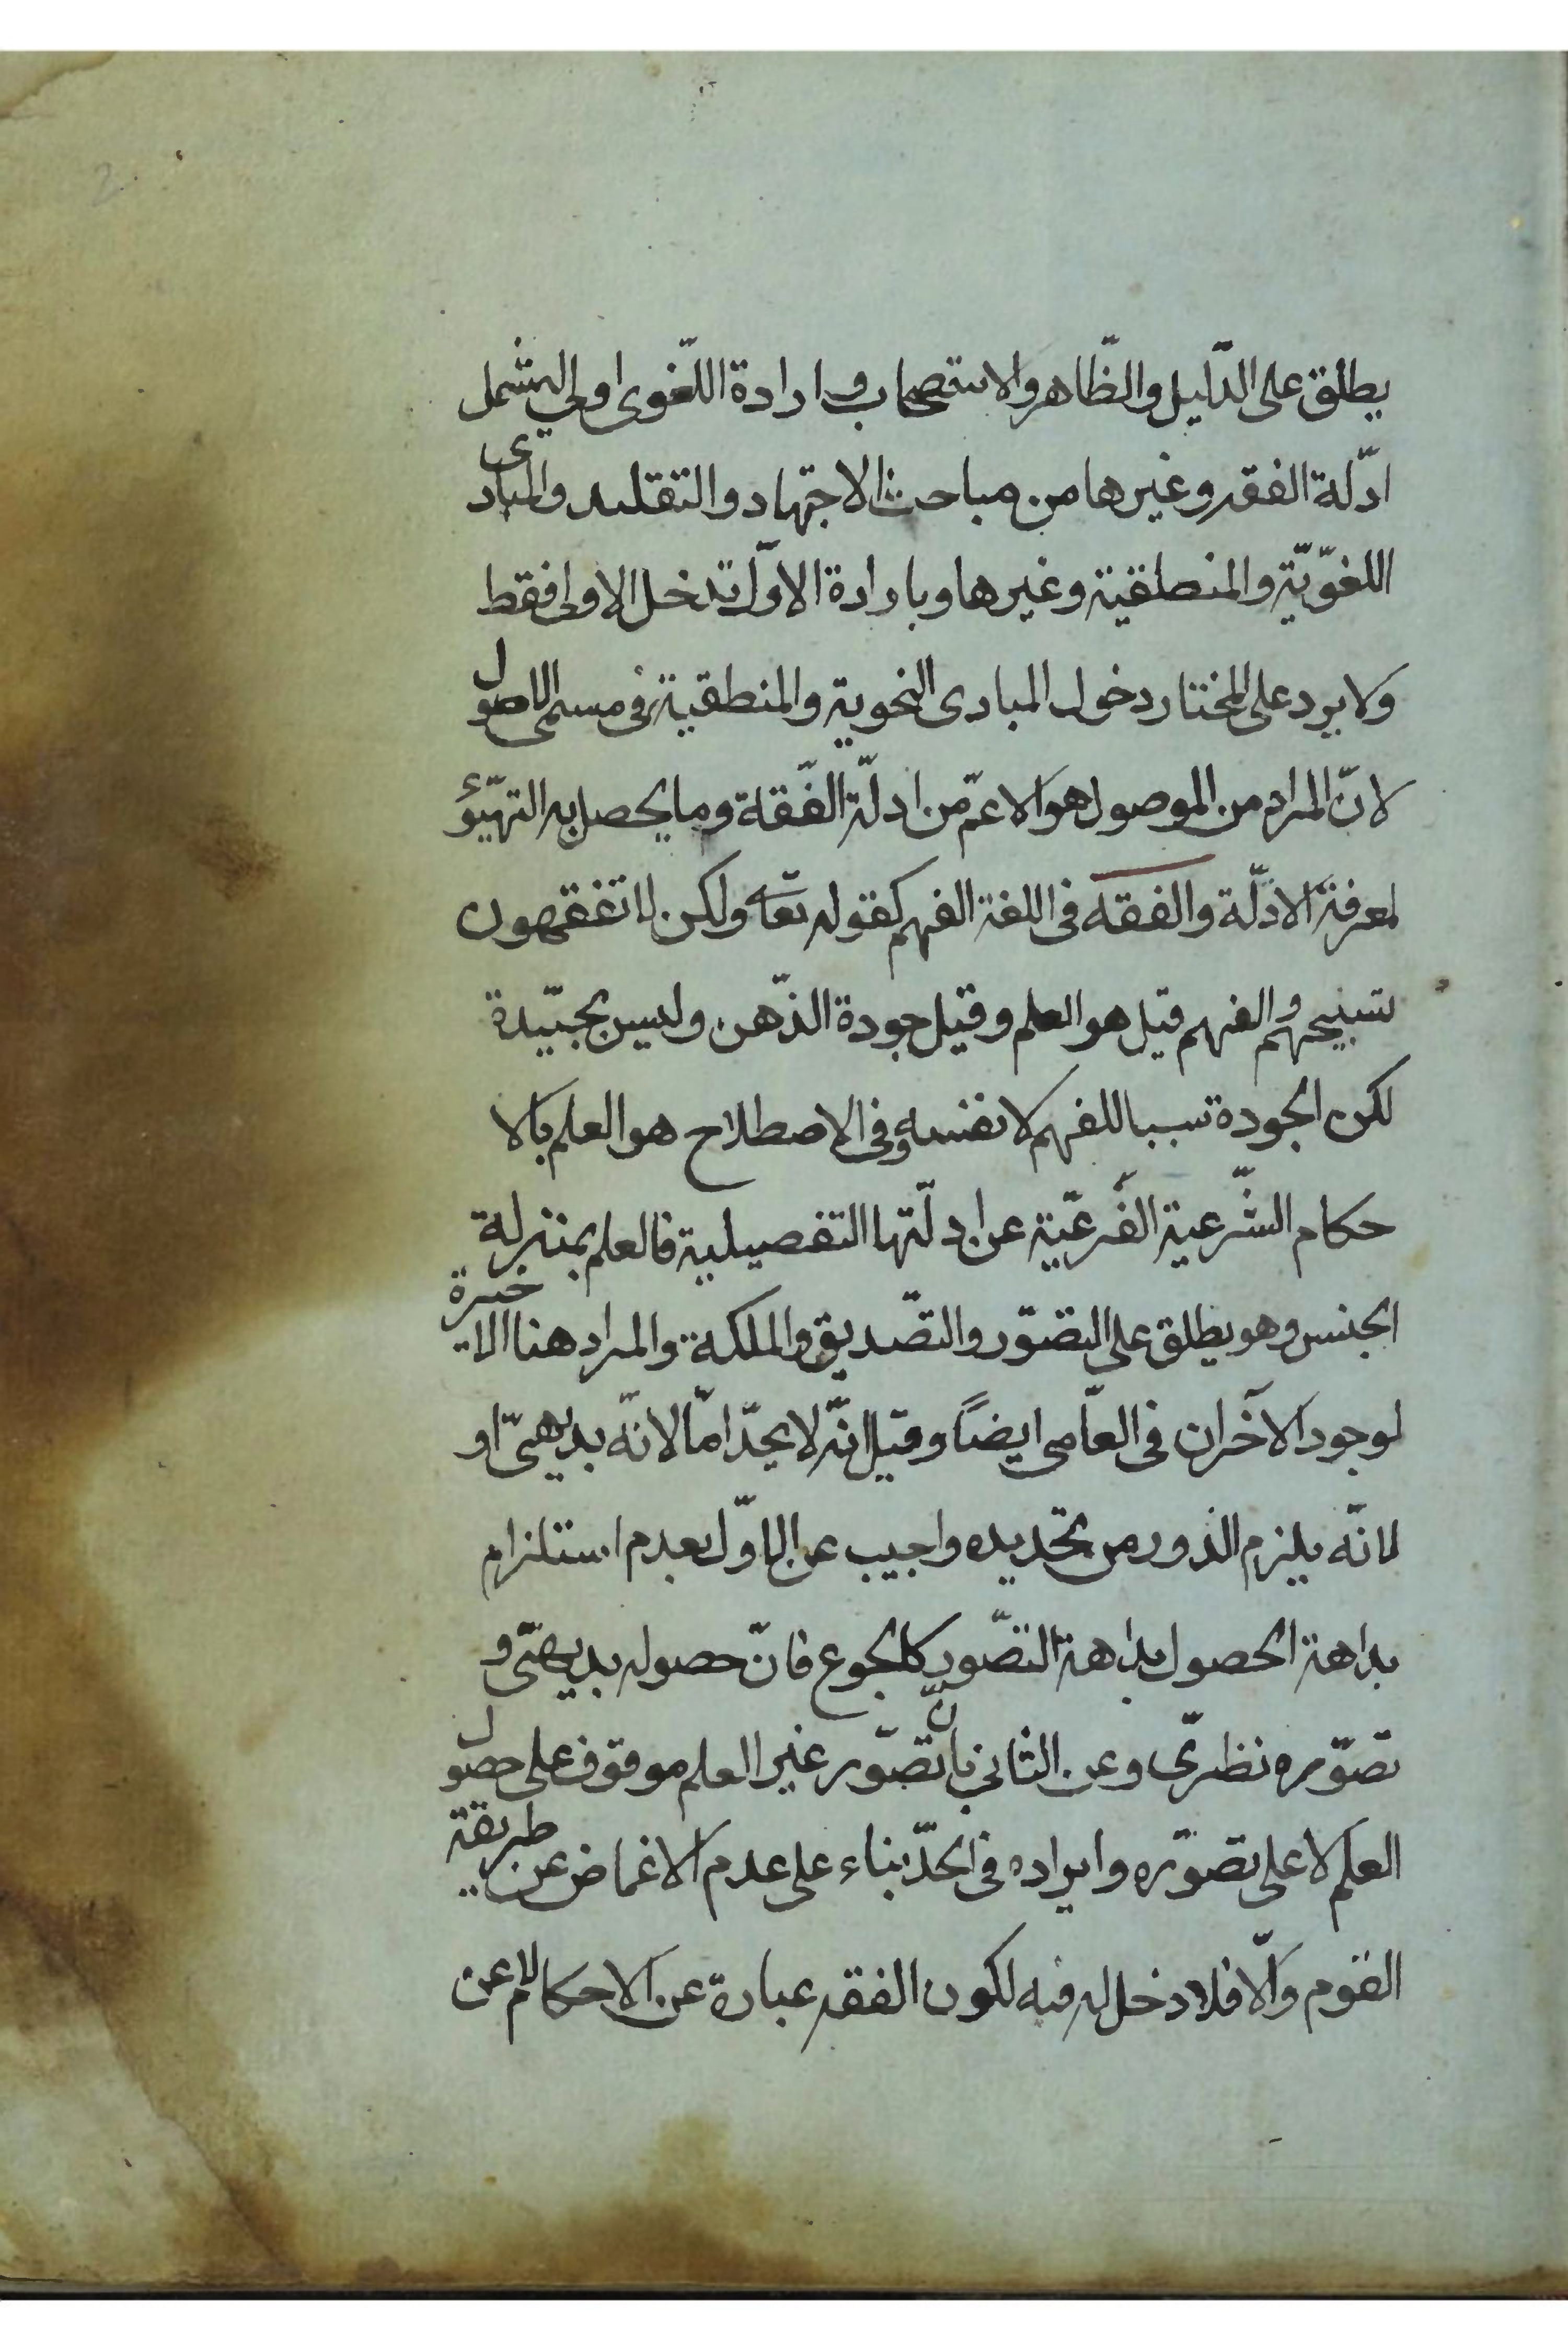 يطلق على الدّليل والظّاهر والاستصحاب وارادة اللّغوى اولى ليشمل
ادّلة الفقه وغيرها من مباحث الاجتهاد والتقليد والمبادى
اللغوّيّة والمنطقية وغيرها وبارادة الاوّل تدخل الاولى فقط
ولا يرد على المختار دخول المبادى النحوية والمنطقية فى مسمى الاصول
لانّ المراد من الموصول هو الاعمّ من ادلّة الفّقه وما يحصل به التهيّؤ
لمعرفة الادلّة والفقه فى اللغة الفهم كقوله تعا ولكن لا تفقهون
تسبيحهم والفهم قيل هو العلم وقيل جودة الذّهن وليس بجيّدة
لكن الجودة سببا للفهم لا نفسه وفى الاصطلاح هو العلم بالا
حكام الشّرعية الفَرعّية عن ادلّتها التفصيلية فالعلم بمنزلة
الجنس وهو يطلق على التصّور والتصّديق والملكة والمراد هنا الاخيرة
لوجود الآخران فى العاّمى ايضاً وقيل انّه لا يحدّ امّا لانّه بديهىّ او
لانّه يلزم الدور من تحديده واجيب عن الاوّل بعدم استلزام
بداهة الحصول بداهة التصّور كالجوع فانّ حصوله بديهىّ و
تصوّره نظرىّ وعن الثانى بانّ تصوّر غير العلم موقوف على حصول
العلم لا على تصوّره وايراده فى الحدّ بناء على عدم الاغماض عن طريقة
القوم والّا فلا دخل له فيه لكون الفقه عبارة عن الاحكام لا عن
2